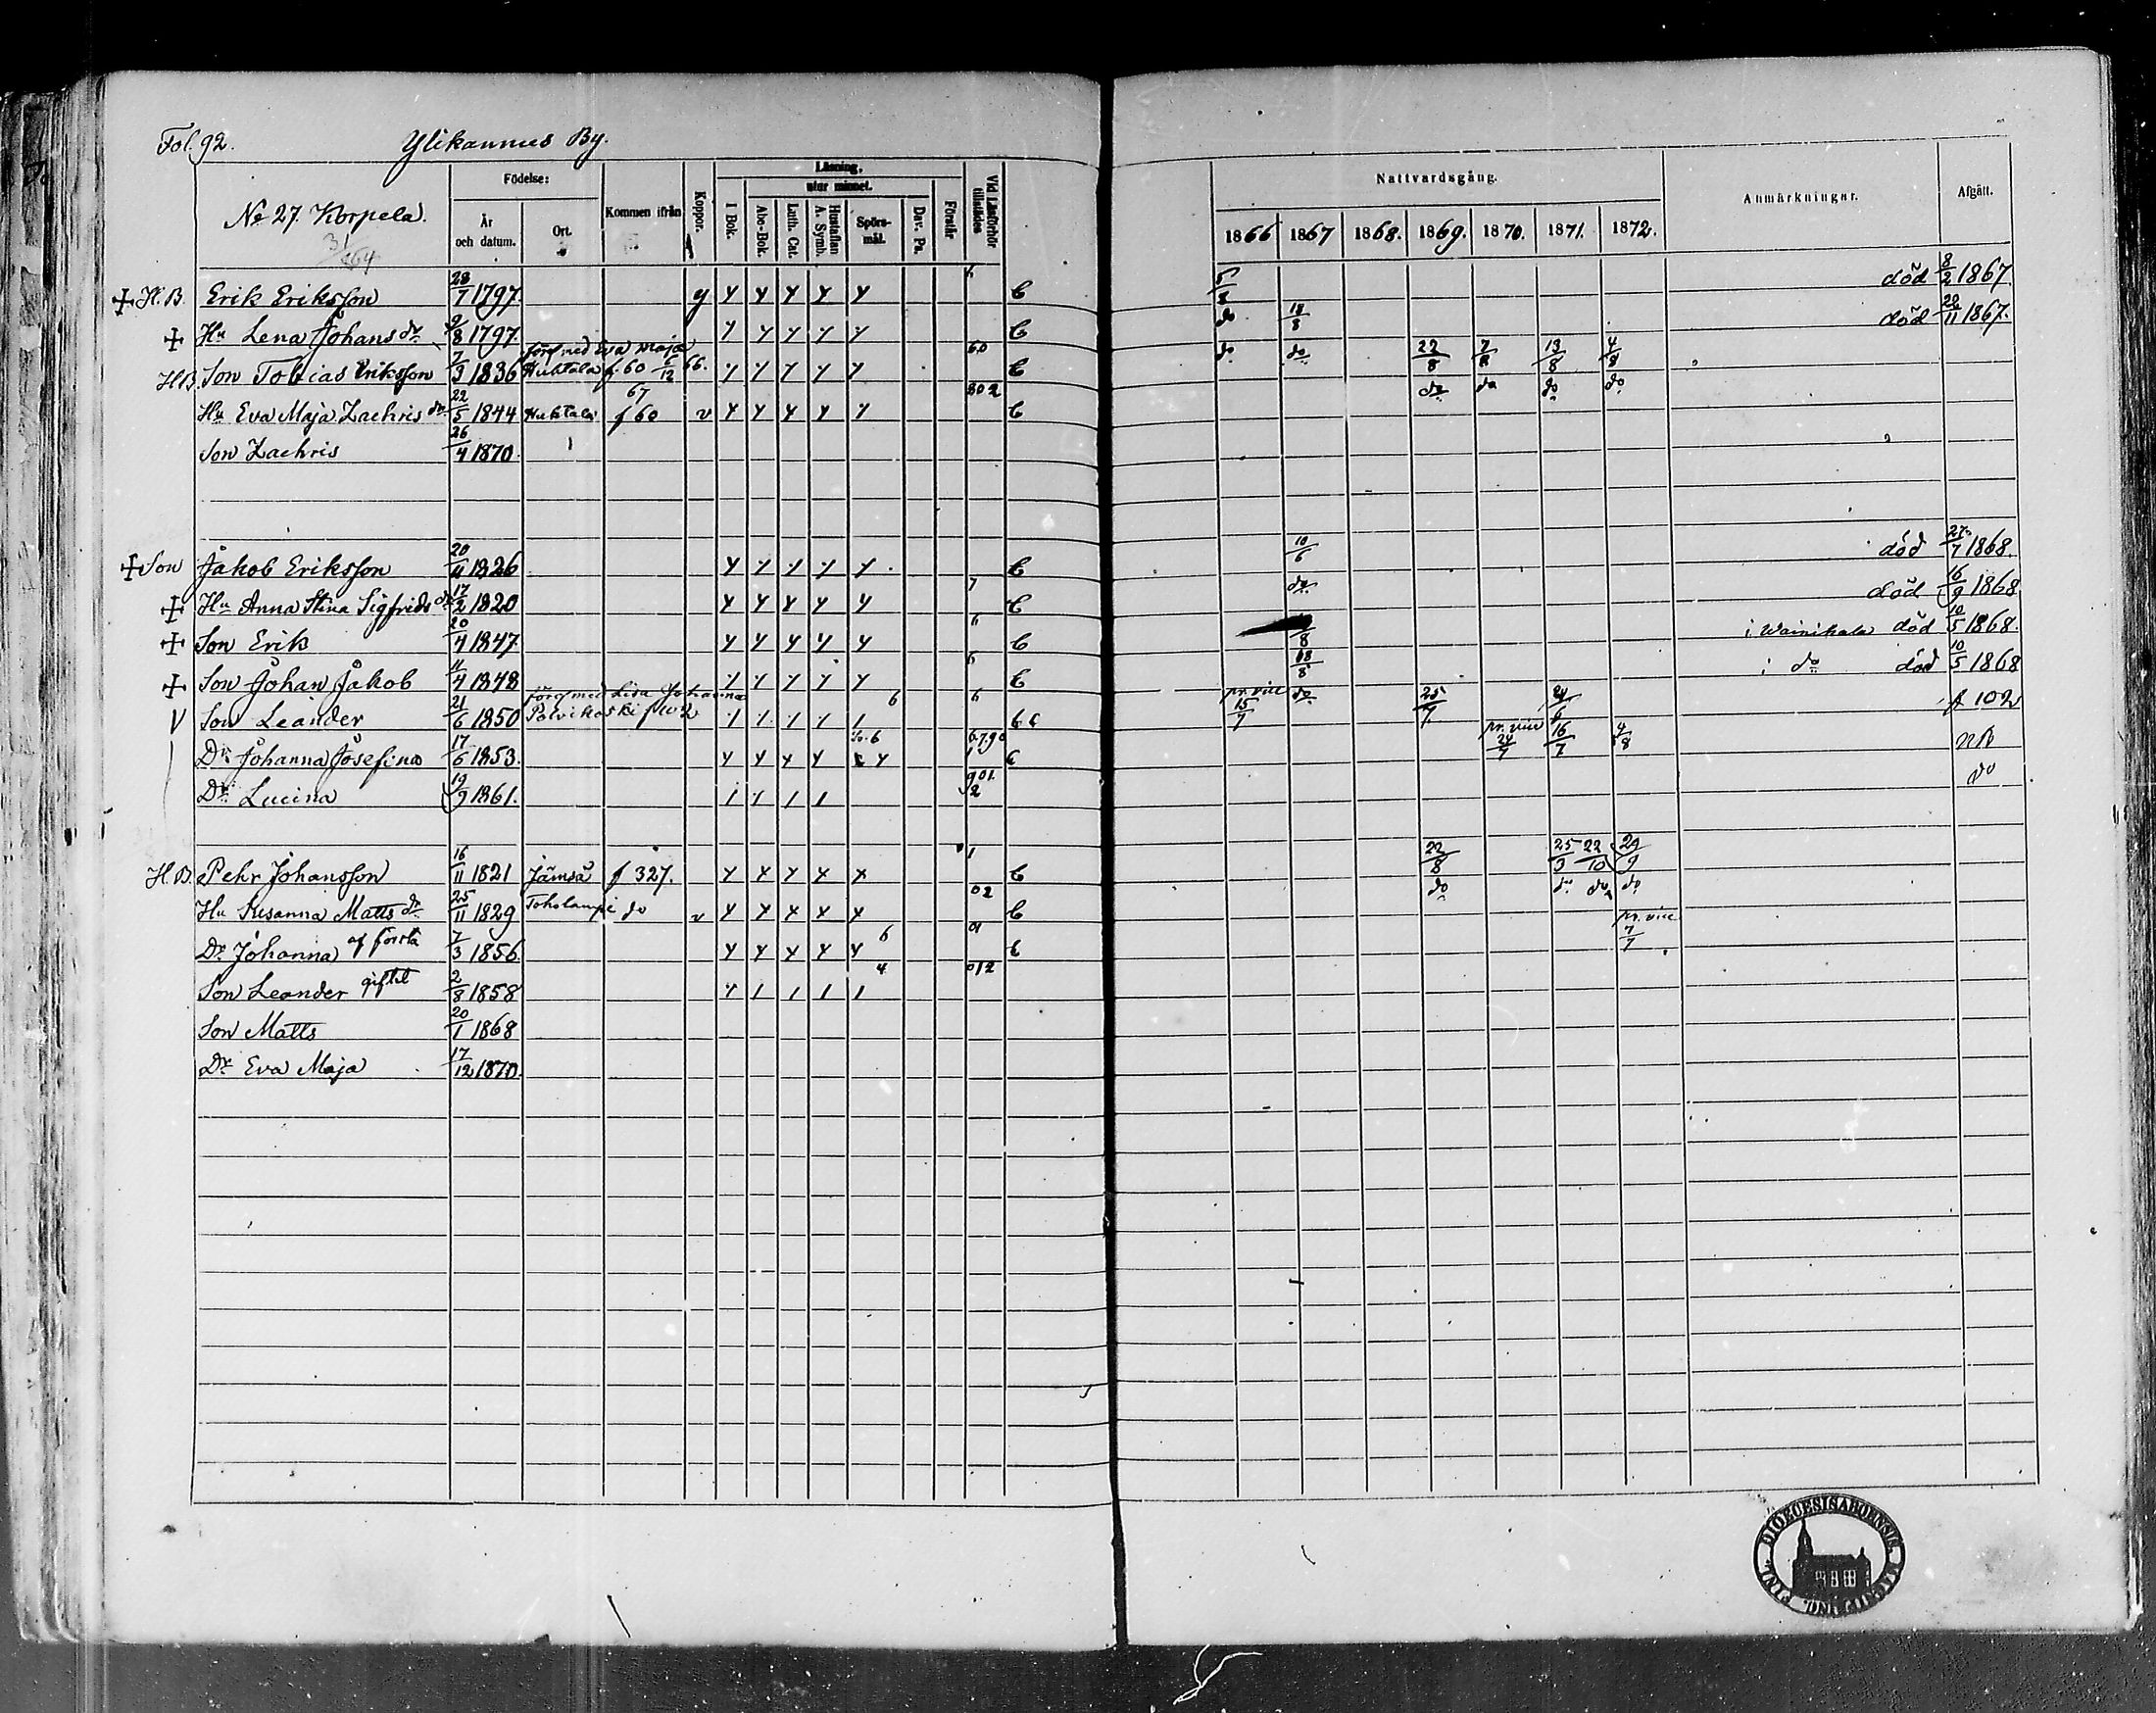 Fol. 92. Ylikannus By.
No 27. Korpela.
Födelse: År och datum. Ort. Kommen ifrån Koppor. Läsning, utur minnet. I Bok. Abc-Bok. Luth. Cat. Hustaflan A. Symb. Spörsmål. Dav. Ps. Förstår Vid Läsförhör tillstädes
Nattvardsgång. Anmärkningar. Afgått.
1866 1867 1868. 1869. 1870. 1871. 1872.
H. B. Erik Eriksson 28/7 1797. död 8/2 1867
Hu Lena Johans dr 9/8 1797. do 18/8 död 20/11 1867.
förl med Eva Maja
H B. Son Tobias Eriksson 7/9 1836 Huhtala f. 60 6/12 66. 60 do do 22/8 7/8 13/8 4/8
Hu Eva Maja Zachris dr 22/5 1844 Huhtala 67 f 60 v 802 do do do do
Son Zachris 26/4 1870.
Son Jakob Eriksson 20/11 1826 10/6 död 27/7 1868.
Hu Anna Stina Sigfrids dr 17/2 1820 7 do död 16/9 1868
Son Erik 20/4 1847 6 i Wainikala död 10/5 1868.
Son Johan Jakob 11/4 1848 6 18/8 i do död 10/5 1868
förl med Lisa Johanna
V Son Leander 21/6 1850 Polvikoski 6 6 pr. vice 15/7 do 25/7 24/6 f 102
Dr Johanna Josefina 17/6 1853. 6.790 1 pr. vice 24/7 16/7 4/8
Dr Lucina 19/9 1861. 901. 2 do
H. B. Pehr Johansson 16/11 1821 Jämsä f 327. 1 22/8 25/9 22/10 29/9
Hu Susanna Matts dr 25/11 1829 Toholampi do v 02 do do do do
Dr Johanna af första 7/3 1856. 6 01 pr. vice 7/7
Son Leander giftet 2/8 1858 4 012
Son Matts 20/1 1868
Dr Eva Maja 17/12 1870.